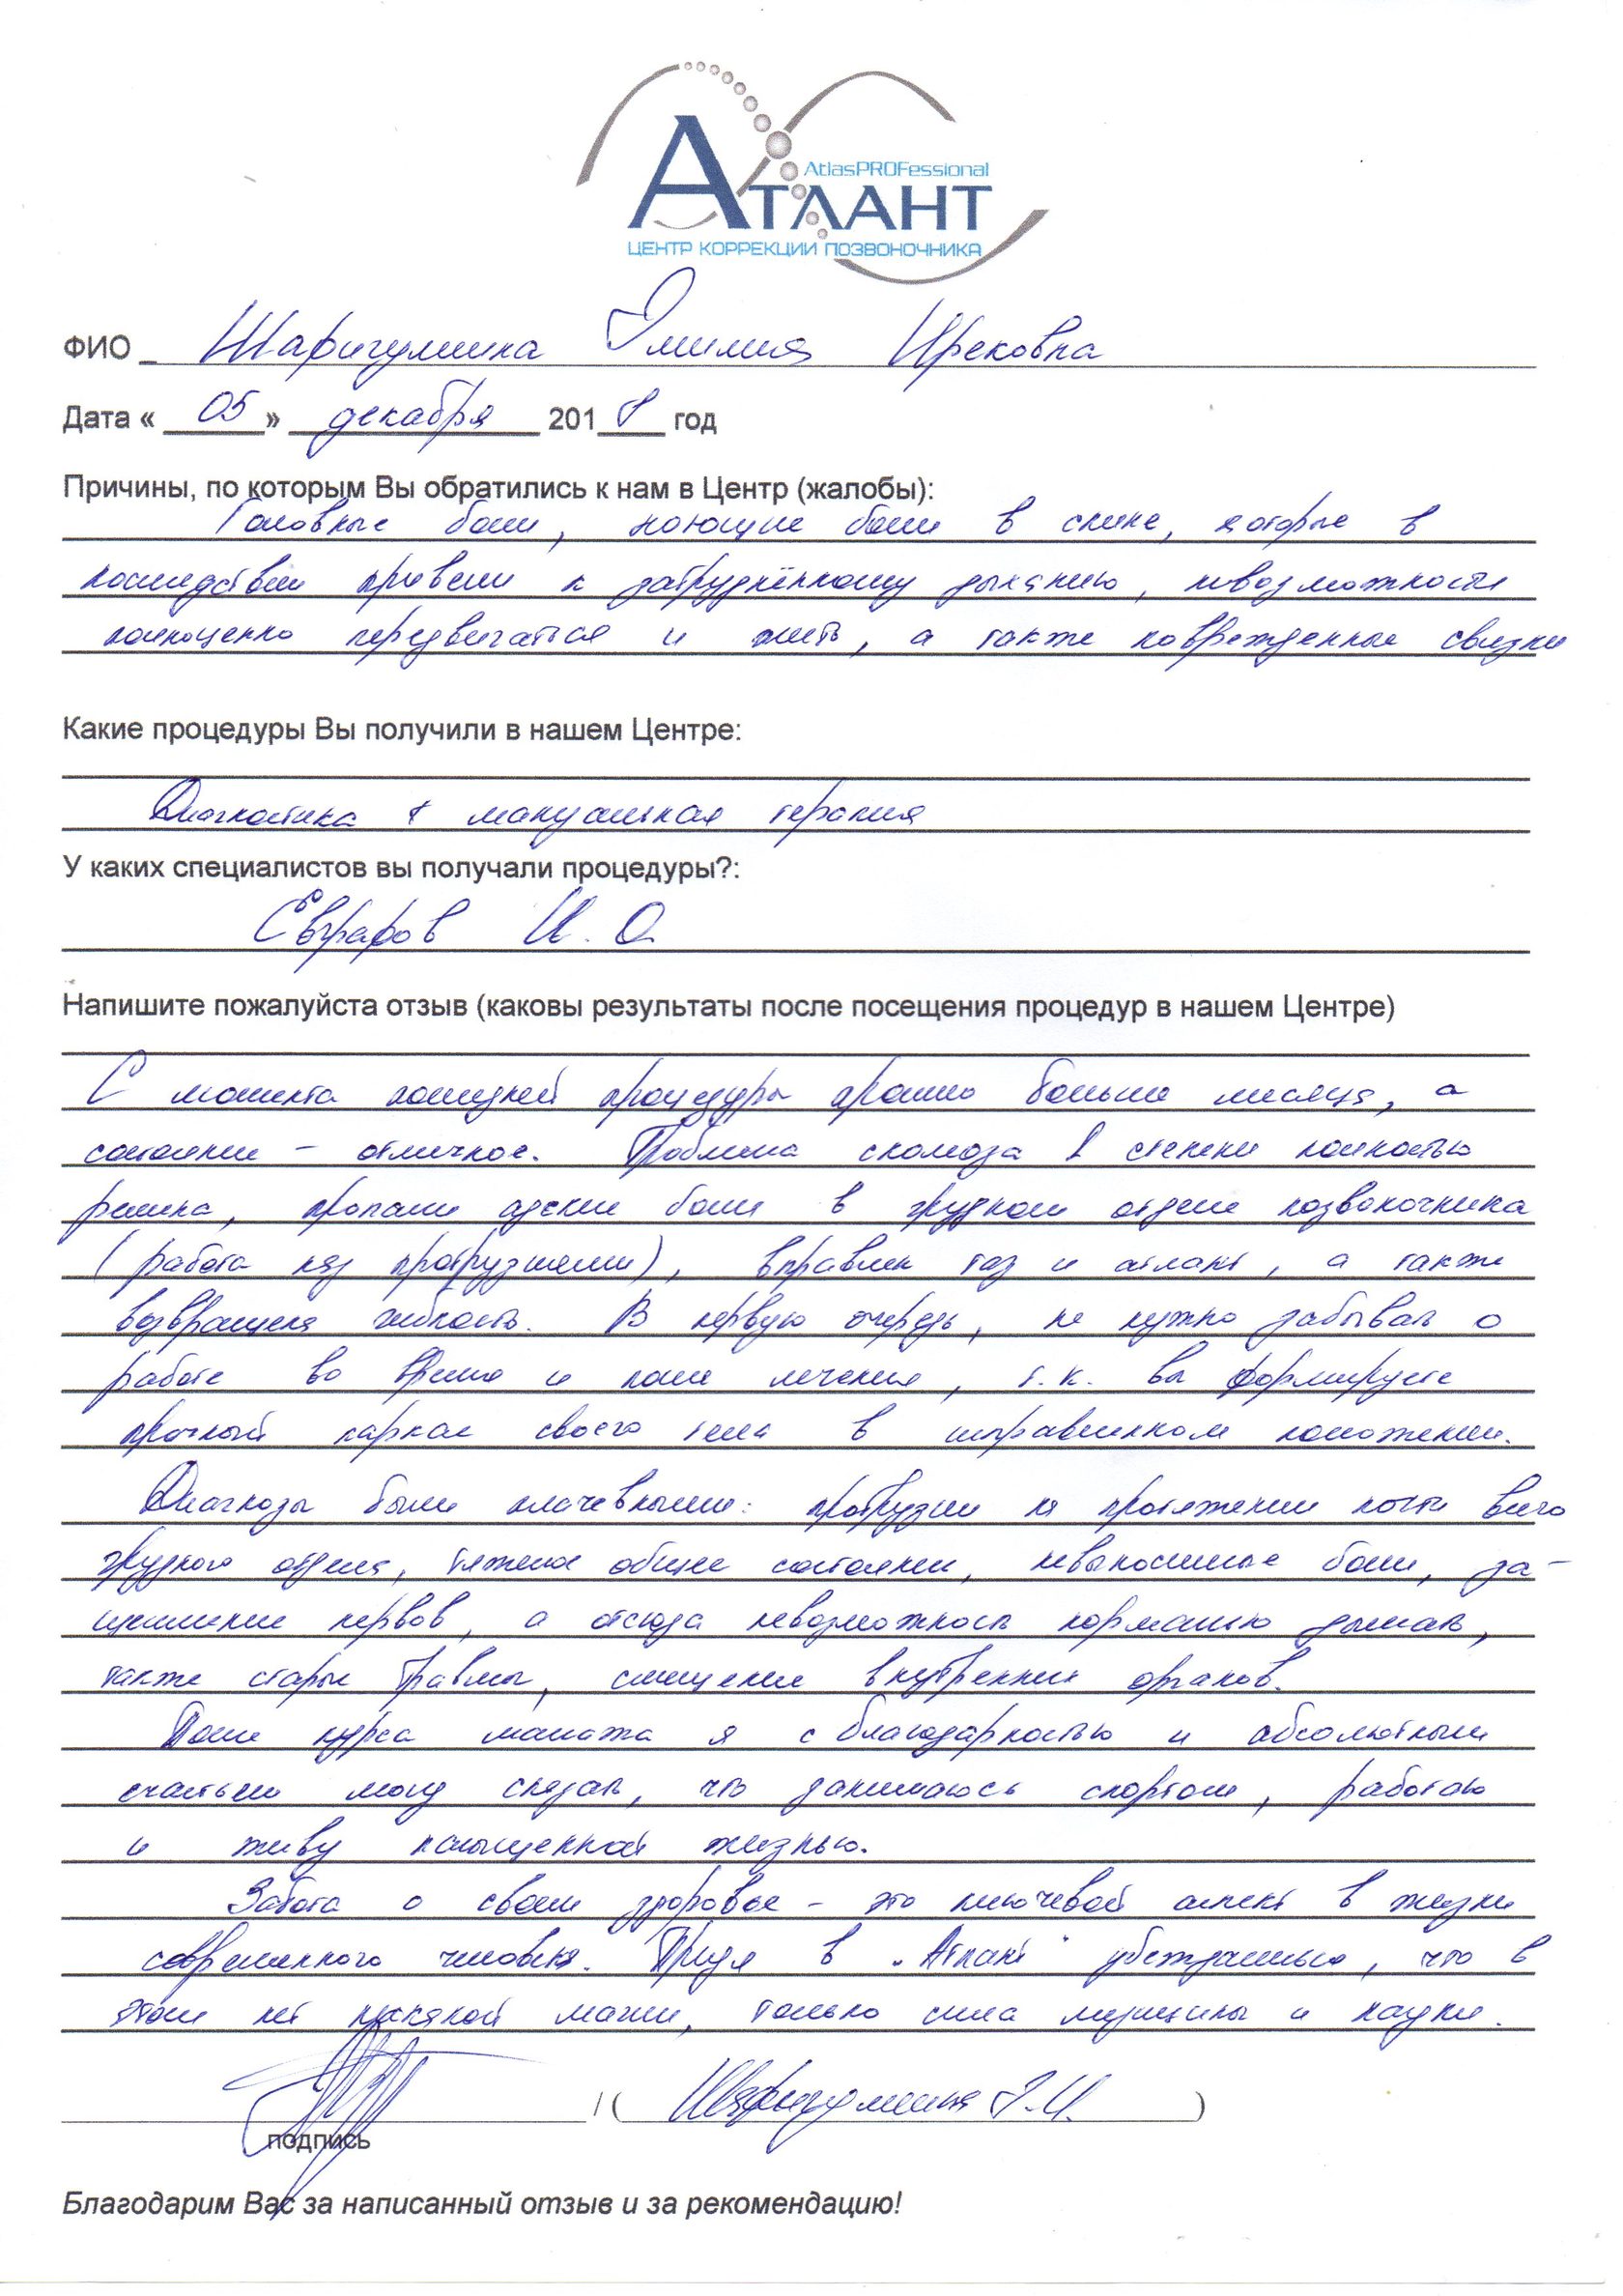 AtlasPROFessional
АТЛАНТ
ЦЕНТР КОРРЕКЦИИ ПОЗВОНОЧНИКА
ФИО Шаригуллина Эмилия Ирековна
Дата « 05 » декабря 2018 год
Причины, по которым Вы обратились к нам в Центр (жалобы):
Головные боли, ноющие боли в спине, которые в
последствии привели к затруднённому дыханию, невозможности
полноценно передвигаться и жить, а также поврежденные связки
Какие процедуры Вы получили в нашем Центре:
Диагностика + мануальная терапия
У каких специалистов вы получали процедуры?:
Евграфов И. О.
Напишите пожалуйста отзыв (каковы результаты после посещения процедур в нашем Центре)
С момента последней процедуры прошло больше месяца, а
состояние – отличное. Проблема сколиоза 1 степени полностью
решена, пропали адские боли в грудном отделе позвоночника
(работа над протрузиями), вправлен таз и атлант, а также
возвращена гибкость. В первую очередь, не нужно забывать о
работе во время и после лечения, т.к. вы формируете
прочный каркас своего тела в исправленном положении.
Диагнозы были плачевными: протрузии на протяжении почти всего
грудного отдела, тяжелое общее состояние, невыносимые боли, за-
щемление нервов, а отсюда невозможность нормально дышать,
также старые травмы, смещение внутренних органов.
После курса массажа я с благодарностью и абсолютным
счастьем могу сказать, что занимаюсь спортом, работаю
и живу насыщенной жизнью.
Забота о своем здоровье – это ключевой аспект в жизни
современного человека. Придя в "Атлант" убеждаешься, что в
этом нет никакой магии, только сила медицины и науки.
/ ( Шаригуллина Э.И. )
подпись
Благодарим Вас за написанный отзыв и за рекомендацию!